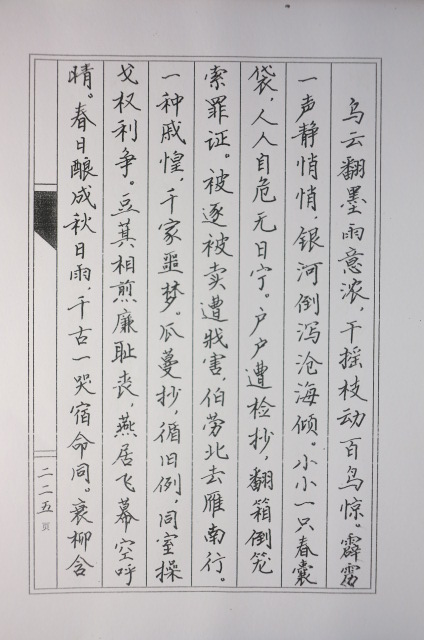 乌云翻墨雨意浓，干摇枝动百鸟惊。霹雳
一声静悄悄，银河倒泻沧海倾。小小一只春囊
袋，人人自危无日宁。户户遭检抄，翻箱倒笼
索罪证。被逐被卖遭戕害，伯劳北去雁南行。
一种戚惶，千家噩梦。瓜蔓抄，循旧例，同室操
戈权利争。豆萁相煎廉耻丧，燕居飞幕空呼
晴。春日酿成秋日雨，千古一哭宿命同。衰柳含
二二五页